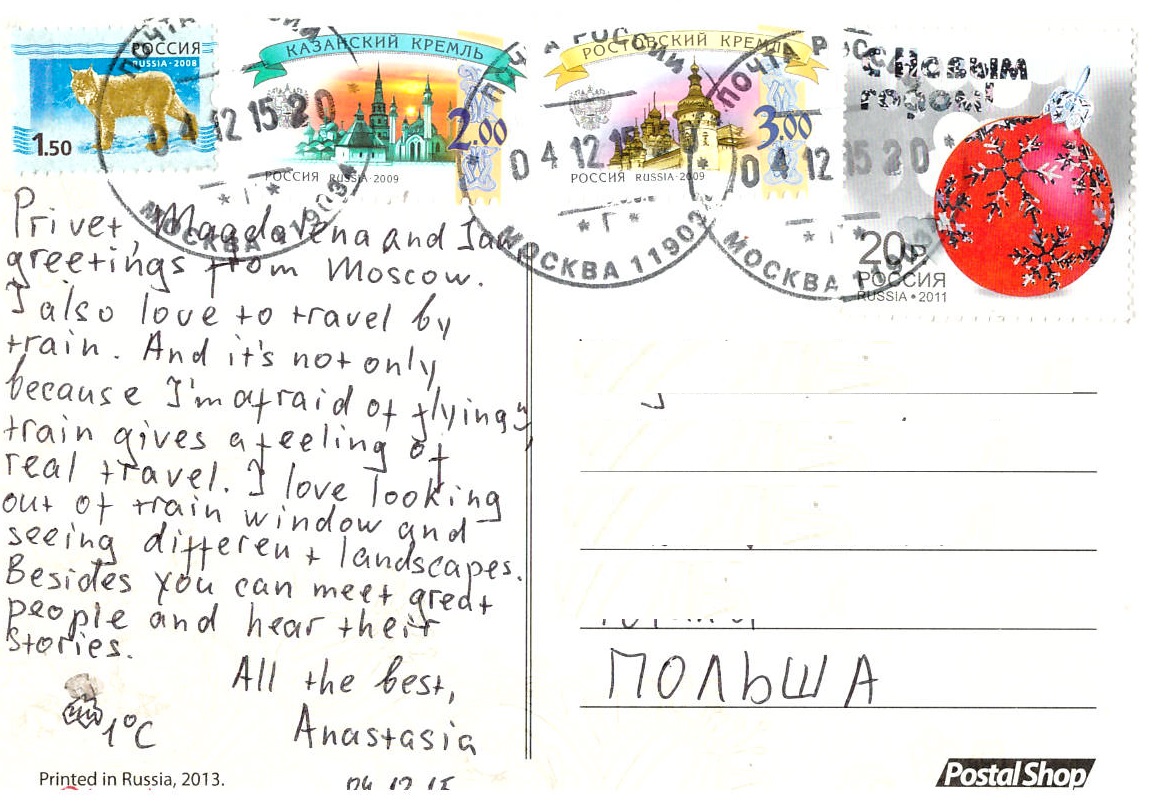 РОССИЯ
RUSSIA-2008
1.50
КАЗАНСКИЙ КРЕМЛЬ
2.00
РОССИЯ RUSSIA-2009
РОСТОВСКИЙ КРЕМЛЬ
3.00
РОССИЯ RUSSIA-2009
С Новым
годом!
20р
РОССИЯ
RUSSIA•2011
ПОЧТА РОССИИ
04 12 15 20
* Г *
МОСКВА 119034
ПОЧТА РОССИИ
04 12 15
* Г *
МОСКВА 11902
ПОЧТА РОССИИ
04 12 15 20
* Г *
МОСКВА
Privet, Magdalena and Jan
greetings from Moscow.
I also love to travel by
train. And it's not only
because I'm afraid of flying
train gives a feeling of
real travel. I love looking
out of train window and
seeing different landscapes.
Besides you can meet great
people and hear their
stories.
All the best,
Anastasia
1°C
04.12.15
ПОЛЬША
Printed in Russia, 2013.
Postal Shop